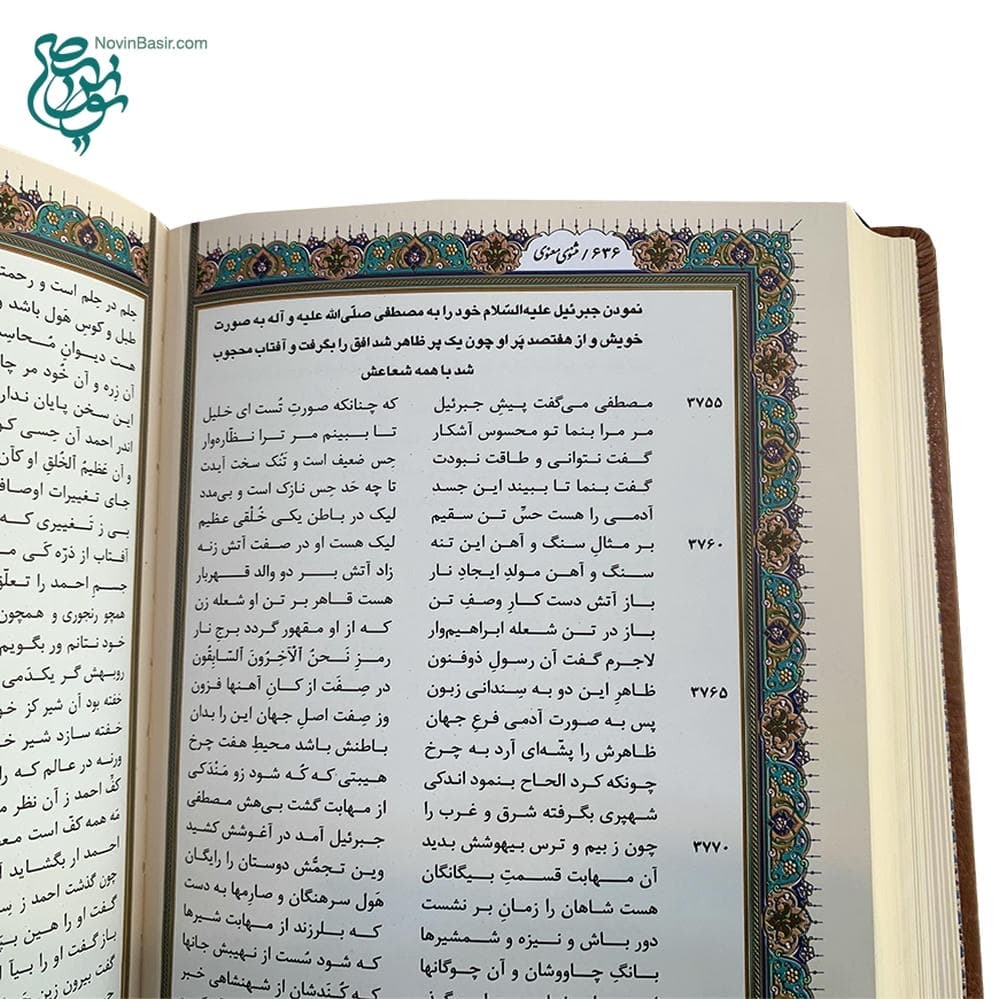 NovinBasir.com
۶۳۶ / مثنوی معنوی
نمودن جبرئیل علیه‌السّلام خود را به مصطفی صلّی‌الله علیه و آله به صورت
خویش و از هفتصد پَر او چون یک پر ظاهر شد افق را بگرفت و آفتاب محجوب
شد با همه شعاعش
۳۷۵۵ مصطفی می‌گفت پیشِ جبرئیل که چنانکه صورتِ تُست ای خلیل
مر مرا بنما تو محسوس آشکار تا ببینم مر ترا نظّاره‌وار
گفت نتوانی و طاقت نبودت حِس ضعیف است و تُنُک سخت آیدت
گفت بنما تا ببیند این جسد تا چه حَد حِس نازک است و بی‌مدد
آدمی را هست حسِّ تن سقیم لیک در باطن یکی خُلْقی عظیم
۳۷۶۰ بر مثالِ سنگ و آهن این تنه لیک هست او در صفت آتش زنه
سنگ و آهن مولدِ ایجادِ نار زاد آتش بر دو والد قهربار
باز آتش دست کارِ وصفِ تن هست قاهر بر تن او شعله زن
باز در تن شعله ابراهیم‌وار که از او مقهور گردد برجِ نار
لاجرم گفت آن رسولِ ذوفنون رمزِ نَحنُ الْآخِرُونَ السّابِقُون
۳۷۶۵ ظاهرِ این دو به سِندانی زبون در صِفَت از کانِ آهنها فزون
پس به صورت آدمی فرعِ جهان وز صِفت اصلِ جهان این را بدان
ظاهرش را پشّه‌ای آرد به چرخ باطنش باشد محیطِ هفت چرخ
چونکه کرد الحاح بنمود اندکی هیبتی که کُه شود زو مَنْدَکی
شهپری بگرفته شرق و غرب را از مهابت گشت بی‌هش مصطفی
۳۷۷۰ چون ز بیم و ترس بیهوشش بدید جبرئیل آمد در آغوشش کشید
آن مهابت قسمتِ بیگانگان وین تجمّش دوستان را رایگان
هست شاهان را زمانِ بر نشست هَول سرهنگان و صارمها به دست
دور باش و نیزه و شمشیرها که بلرزند از مهابت شیرها
بانگِ چاووشان و آن چوگانها که شود سُست از نهیبش جانها
که کُندَشان از شهنشاهی خبر
حِلم در حِلم است و رحمت
طبل و کوسِ هَول باشد و
هست دیوانِ مُحاسِب
آن زِره و آن خُود مر
این سخن پایان ندارد
اندر احمد آن حِسی کو
و آن عَظیمُ الْخُلقِ او کآن
جای تغییرات اوصاف
بی ز تَغییری که
آفتاب از ذرّه کَی
جسم احمد را تعلّق
همچو رنجوری و همچون
خود نتانم ور بگویم
روبهش گر یکدَمی
خفته بود آن شیر کز
خفته سازد شیر
ورنه در عالم که را
کفِّ احمد ز آن نظر
مَه همه کفّ است
احمد ار بگشاید
چون گذشت احمد ز
گفت او را هین
باز گفت او را بیا
گفت بیرون زین